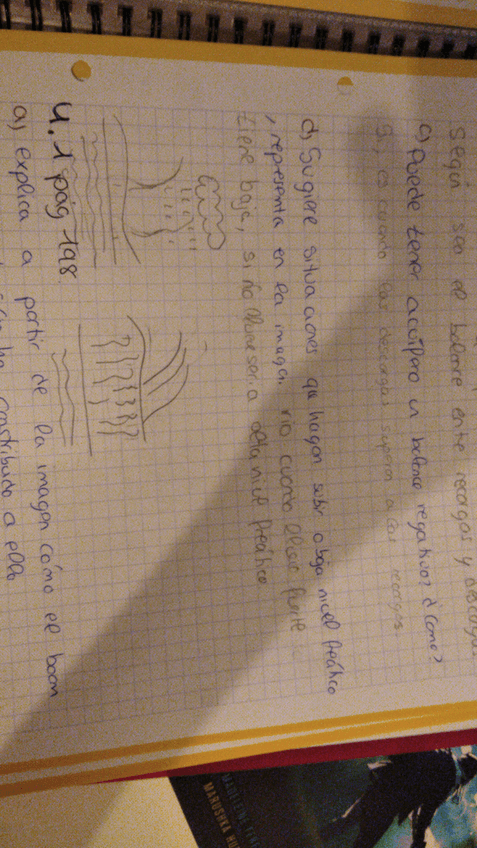 según sea el balance entre recargas y descargas
c) Puede tener acuífero un balance negativo? ¿Como?
Si, es cuando las descargas superan a las recargas.
d) Sugiere situaciones que hagan subir o baja nivel freático
, representa en la imagen. rio cuando llueve fuerte
tiene baja, si no llueve sera alta nivel freático
4. 1 pág 198.
a) explica a partir de la imagen cómo el boom
contribuido a ello
MADELEINE
MARUSHKA